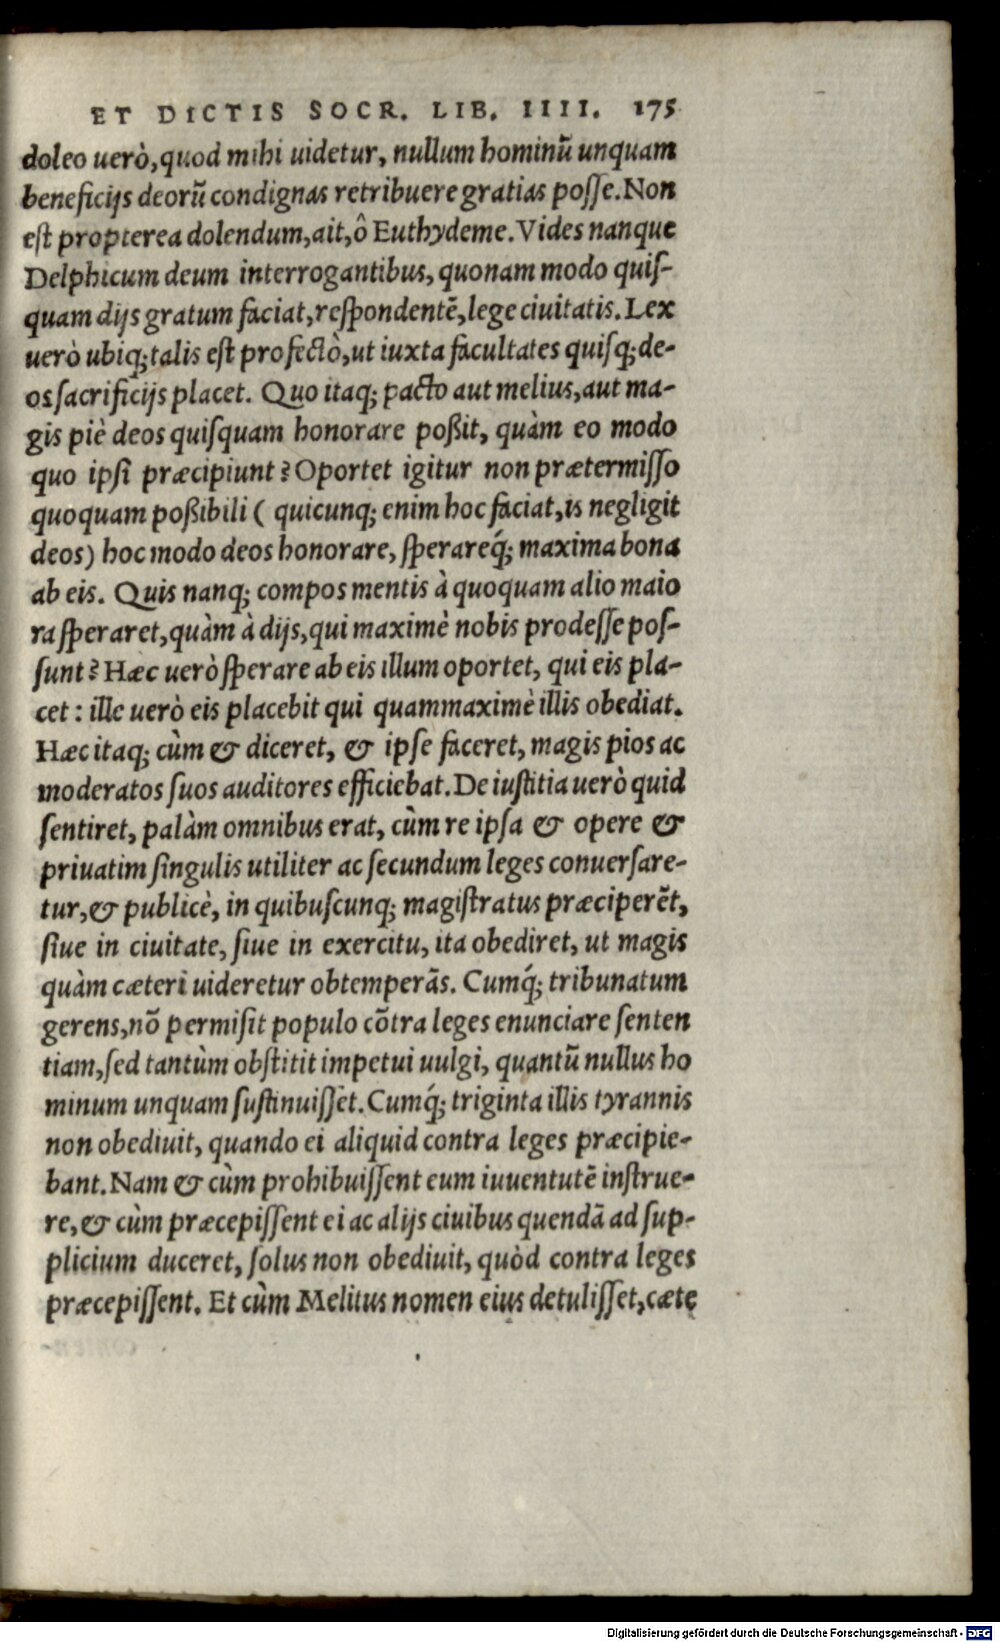 ET DICTIS SOCR. LIB. IIII. 175
doleo uerò, quod mihi uidetur, nullum hominũ unquam
beneficijs deorũ condignas retribuere gratias posse. Non
est propterea dolendum, ait, ô Euthydeme. Vides nanque
Delphicum deum interrogantibus, quonam modo quis-
quam dijs gratum faciat, respondentẽ, lege ciuitatis. Lex
uerò ubiq; talis est profectò, ut iuxta facultates quisq; de-
os sacrificijs placet. Quo itaq; pacto aut melius, aut ma-
gis piè deos quisquam honorare poßit, quàm eo modo
quo ipsi præcipiunt? Oportet igitur non prætermisso
quoquam poßibili ( quicunq; enim hoc faciat, is negligit
deos) hoc modo deos honorare, sperareq́; maxima bona
ab eis. Quis nanq; compos mentis à quoquam alio maio
ra speraret, quàm à dijs, qui maximè nobis prodesse pos-
sunt? Hæc uerò sperare ab eis illum oportet, qui eis pla-
cet: ille uerò eis placebit qui quammaximè illis obediat.
Hæc itaq; cùm & diceret, & ipse faceret, magis pios ac
moderatos suos auditores efficiebat. De iustitia uerò quid
sentiret, palàm omnibus erat, cùm re ipsa & opere &
priuatim singulis utiliter ac secundum leges conuersare-
tur, & publicè, in quibuscunq; magistratus præciperẽt,
siue in ciuitate, siue in exercitu, ita obediret, ut magis
quàm cæteri uideretur obtemperãs. Cumq́; tribunatum
gerens, nõ permisit populo cõtra leges enunciare senten
tiam, sed tantùm obstitit impetui uulgi, quantũ nullus ho
minum unquam sustinuisset. Cumq́; triginta illis tyrannis
non obediuit, quando ei aliquid contra leges præcipie-
bant. Nam & cùm prohibuissent eum iuuentutẽ instrue-
re, & cùm præcepissent ei ac alijs ciuibus quendã ad sup-
plicium duceret, solus non obediuit, quòd contra leges
præcepissent. Et cùm Melitus nomen eius detulisset, cæte
Digitalisierung gefördert durch die Deutsche Forschungsgemeinschaft - DFG